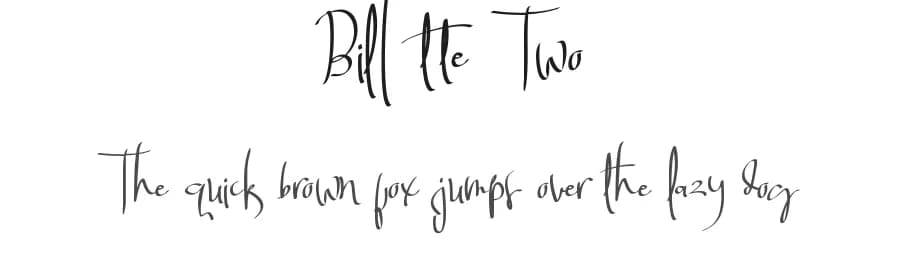 Bill tte Two
The quick brown fox jumps over the lazy dog